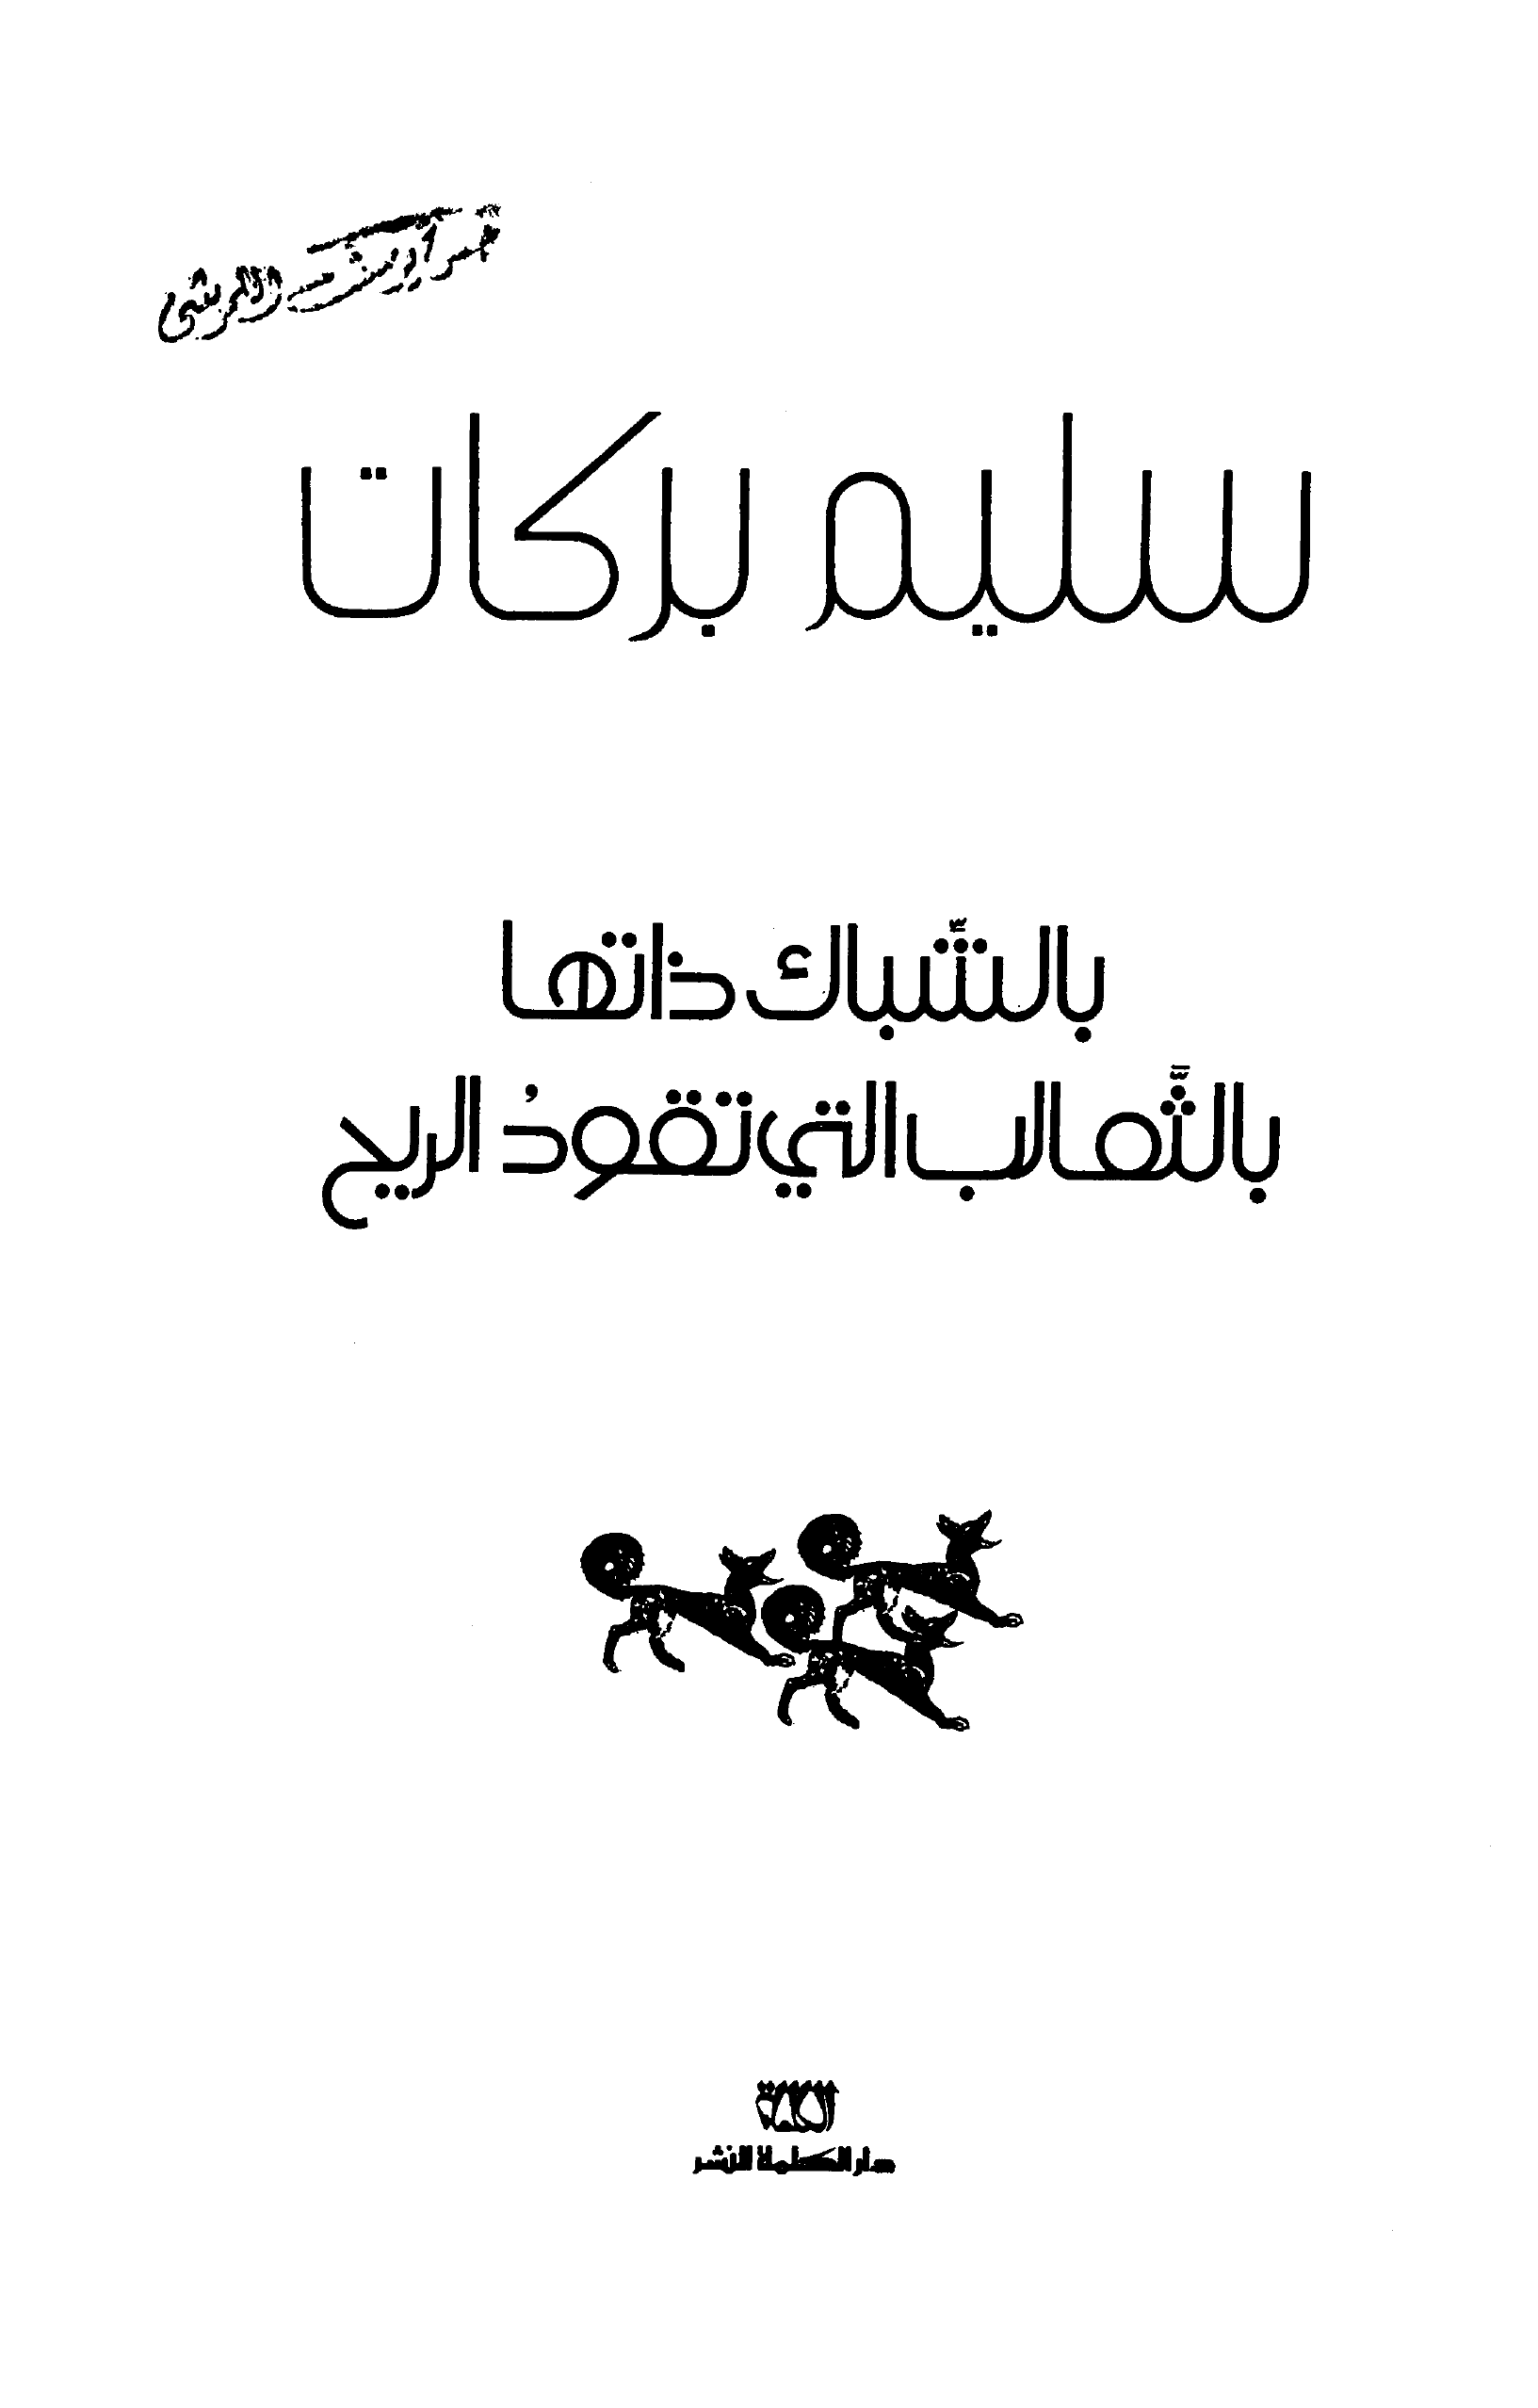 سليم بركات
بالشِّباك ذاتها
بالثَّعالب التي تقودُ الريح
الكلمة
دار الكلمة للنشر